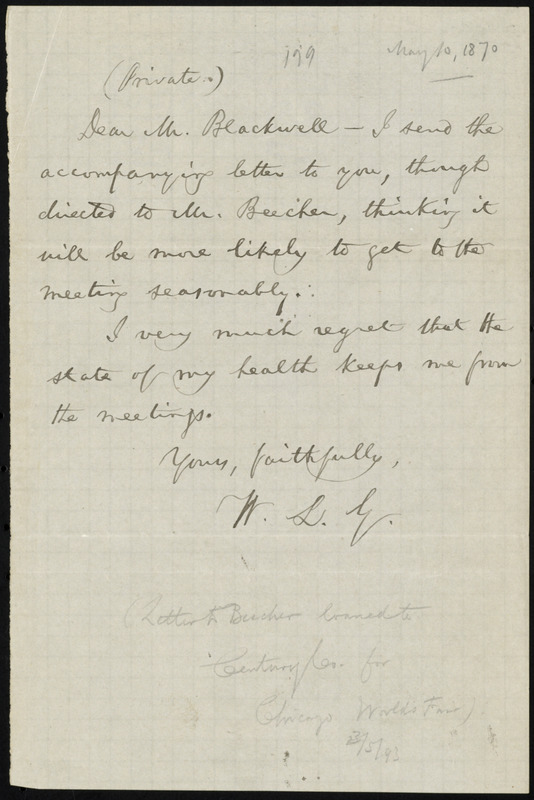 179 May 10, 1870
(Private.)
Dear Mr. Blackwell — I send the
accompanying letter to you, though
directed to Mr. Beecher, thinking it
will be more likely to get to the
meeting seasonably.
I very much regret that the
state of my health keeps me from
the meetings.
Yours, faithfully,
W. L. G.
(Letter to Beecher loaned to
Century Co. for
Chicago World's Fair)
/5/93